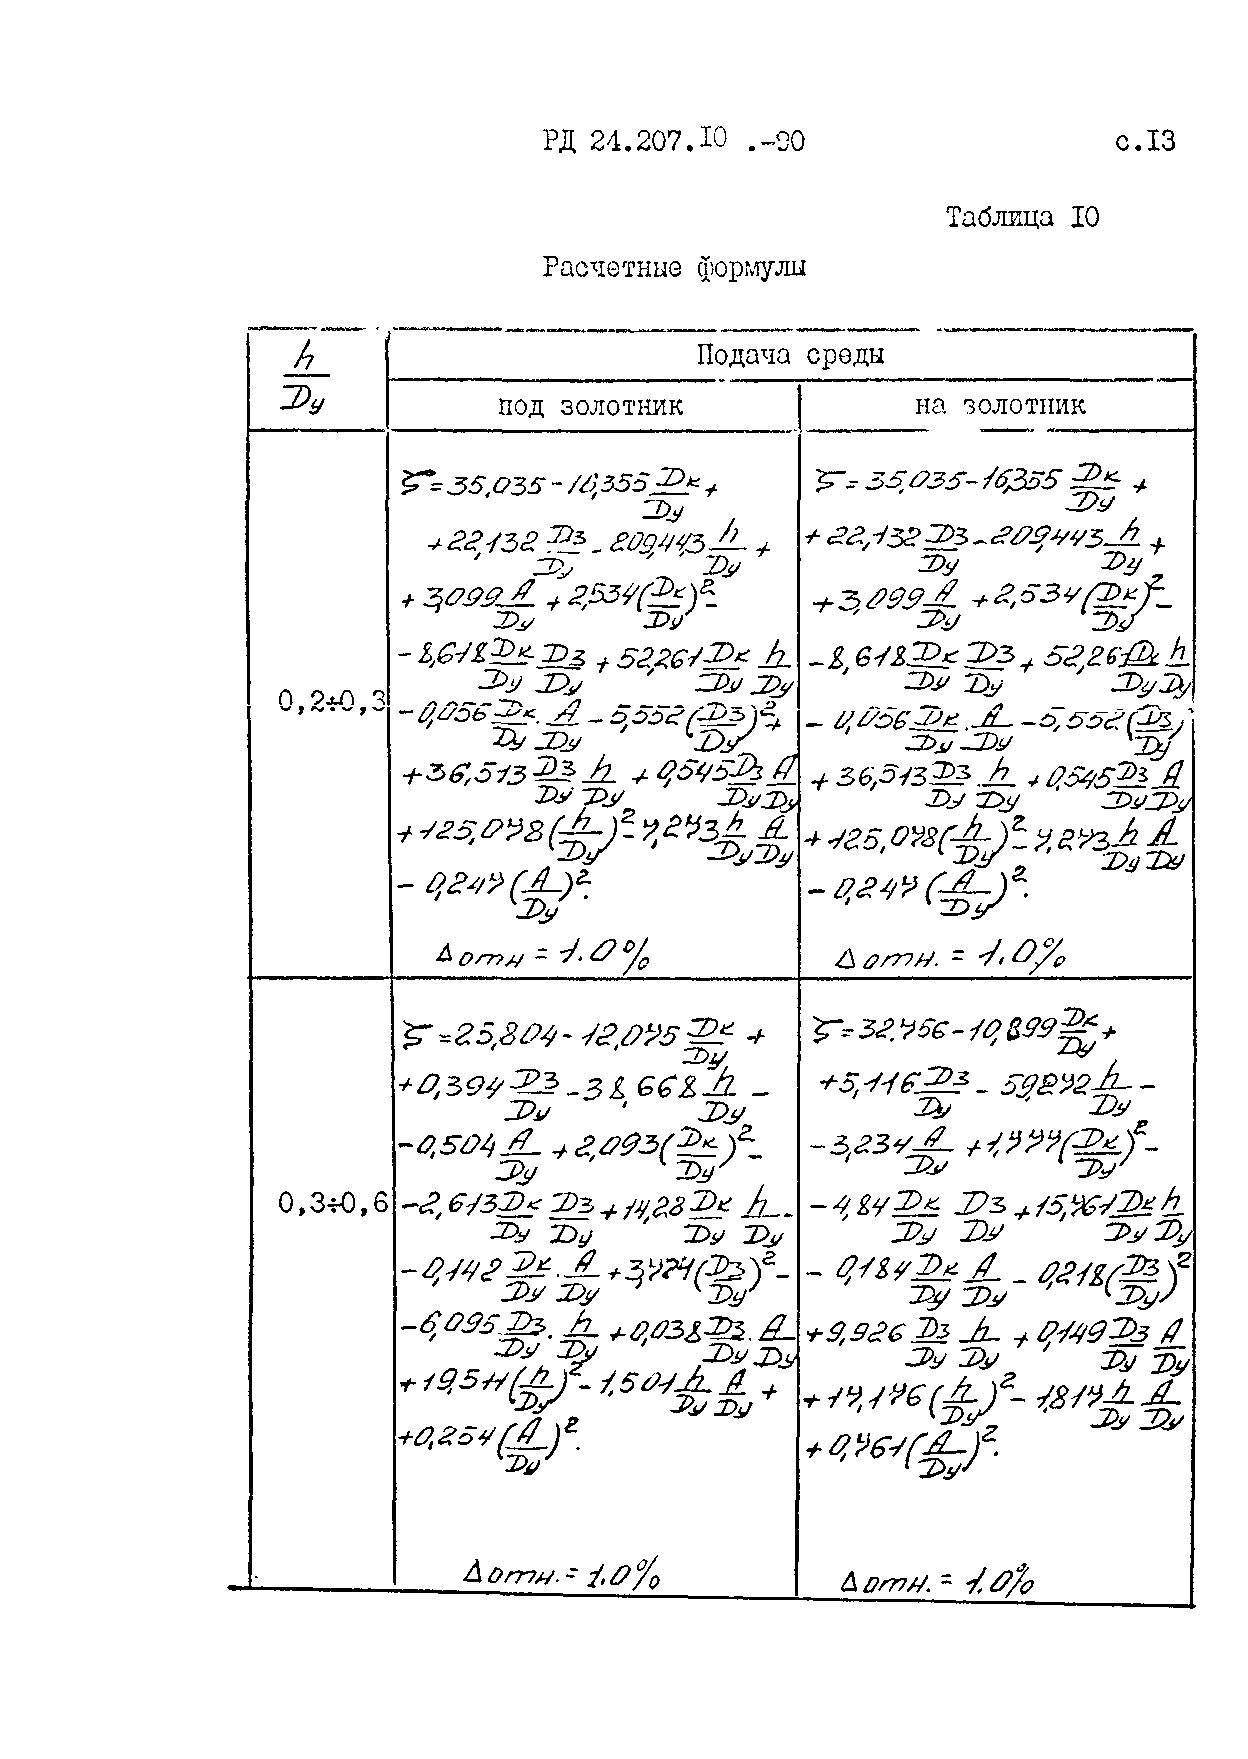 РД 24.207.10 .-90 с.13
Таблица 10
Расчетные формулы
h/Dу
Подача среды
под золотник
на золотник
0,2÷0,3
ζ=35,035-16,355 Dк/Dу +
+22,132 Dз/Dу - 209,443 h/Dу +
+3,099 A/Dу +2,534(Dк/Dу)²-
-8,618 Dк/Dу Dз/Dу +52,261 Dк/Dу h/Dу
-0,056 Dк/Dу · A/Dу -5,552(Dз/Dу)²+
+36,513 Dз/Dу h/Dу +0,545 Dз/Dу A/Dу
+125,078(h/Dу)²-7,273 h/Dу A/Dу
-0,247(A/Dу)².
Δотн = 1.0%
ζ=35,035-16,355 Dк/Dу +
+22,132 Dз/Dу -209,443 h/Dу +
+3,099 A/Dу +2,534(Dк/Dу)²-
-8,618 Dк/Dу Dз/Dу +52,261 Dк/Dу h/Dу
-0,056 Dк/Dу · A/Dу -5,552(Dз/Dу)
+36,513 Dз/Dу · h/Dу +0,545 Dз/Dу A/Dу
+125,078(h/Dу)²-7,273 h/Dу A/Dу
-0,247(A/Dу)².
Δотн. = 1.0%
0,3÷0,6
ζ=25,804-12,075 Dк/Dу +
+0,394 Dз/Dу -38,668 h/Dу -
-0,504 A/Dу +2,093(Dк/Dу)²-
-2,613 Dк/Dу Dз/Dу +14,28 Dк/Dу h/Dу -
-0,142 Dк/Dу · A/Dу +3,774(Dз/Dу)²-
-6,095 Dз/Dу · h/Dу +0,038 Dз/Dу · A/Dу
+19,511(h/Dу)²-1,501 h/Dу · A/Dу +
+0,254(A/Dу)².
Δотн. = 1.0%
ζ=32.756-10,899 Dк/Dу +
+5,116 Dз/Dу - 59,872 h/Dу -
-3,234 A/Dу +1,777(Dк/Dу)²-
-4,84 Dк/Dу Dз/Dу +15,761 Dк/Dу h/Dу
-0,184 Dк/Dу A/Dу -0,218(Dз/Dу)²
+9,926 Dз/Dу · h/Dу +0,149 Dз/Dу A/Dу
+17,176(h/Dу)²-1,817 h/Dу A/Dу
+0,761(A/Dу)².
Δотн. = 1.0%